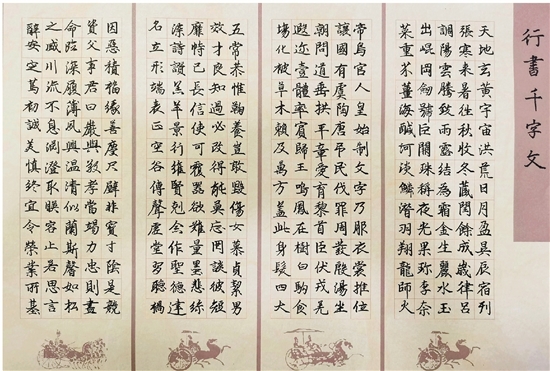 行書千字文
天地玄黃宇宙洪荒日月盈昃辰宿列
張寒來暑往秋收冬藏閏餘成歲律呂
調陽雲騰致雨露結為霜金生麗水玉
出崐岡劍號巨闕珠稱夜光果珍李柰
菜重芥薑海鹹河淡鱗潛羽翔龍師火
帝鳥官人皇始制文字乃服衣裳推位
讓國有虞陶唐弔民伐罪周發殷湯坐
朝問道垂拱平章愛育黎首臣伏戎羌
遐邇壹體率賓歸王鳴鳳在樹白駒食
場化被草木賴及萬方蓋此身髮四大
五常恭惟鞠養豈敢毀傷女慕貞絜男
效才良知過必改得能莫忘罔談彼短
靡恃己長信使可覆器欲難量墨悲絲
染詩讚羔羊景行維賢剋念作聖德建
名立形端表正空谷傳聲虛堂習聽禍
因惡積福緣善慶尺璧非寶寸陰是競
資父事君曰嚴與敬孝當竭力忠則盡
命臨深履薄夙興溫清似蘭斯馨如松
之盛川流不息淵澄取映容止若思言
辭安定篤初誠美慎終宜令榮業所基